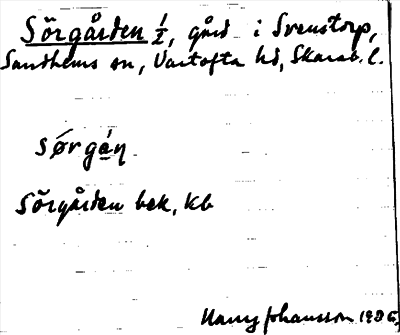 Sörgården 1/2, gård i Svenstorp,
Sandhems sn, Vartofta hd, Skarab. l.
sǿrgáṇ
Sörgården bek, kb
Harry Johansson 1986,